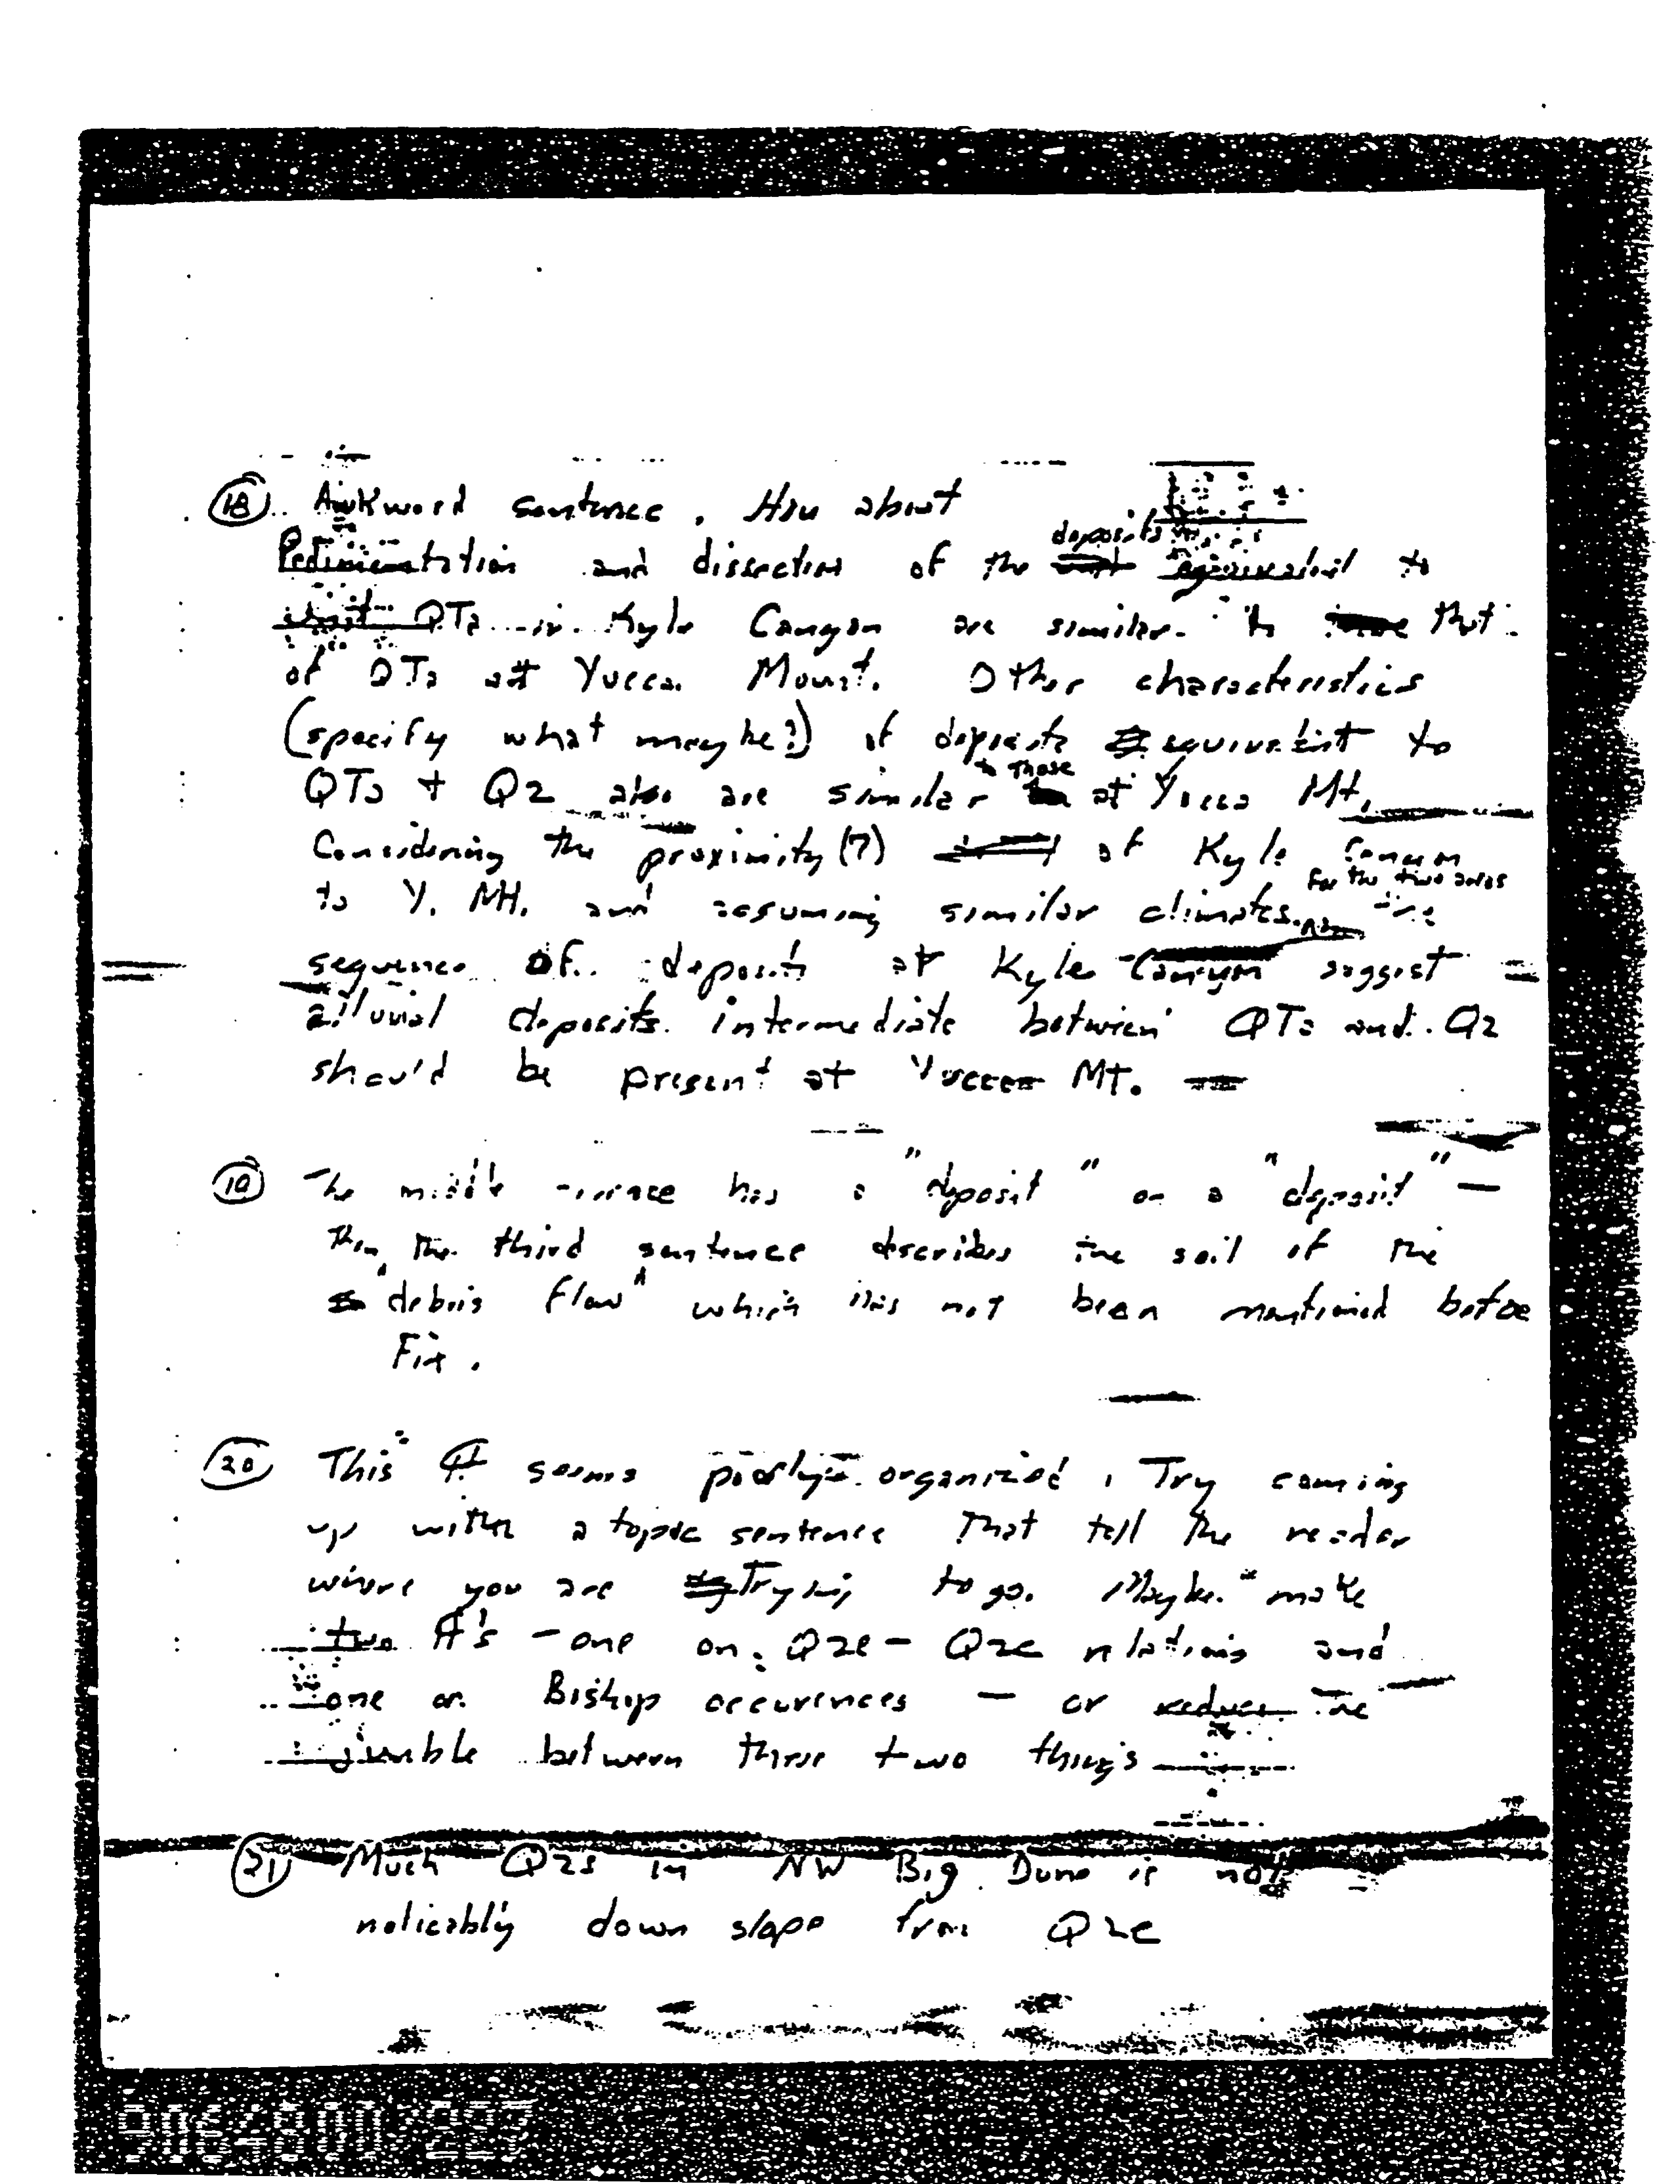 18 Awkward sentence. How about
deposits
Pedimentation and dissection of the equivalent to
unit QTa in Kyle Canyon are similar to that
of QTa at Yucca Mount. Other characteristics
(specify what maybe?) of deposits equivalent to
to those
QTa + Q2 also are similar at Yucca Mt.
Considering the proximity (?) of Kyle Canyon
for the two areas
to Y. Mt. and assuming similar climates the
sequence of deposits at Kyle Canyon suggest
alluvial deposits intermediate between QTa and Q2
should be present at Yucca Mt.
19 The middle terrace has a "deposit" on a "deposit" —
Then the third sentence describes the soil of the
"debris flow" which has not been mentioned befoe
Fix.
20 This ¶ seems poorly organized, Try coming
up with a topic sentence that tell the reader
where you are Trying to go. Maybe make
two ¶'s - one on Q2e - Q2c relations and
one on Biship occurences — or reduce the
jumble between these two things
21 Much Q2s in NW Big Dune is not
noticably down slope from Q2c